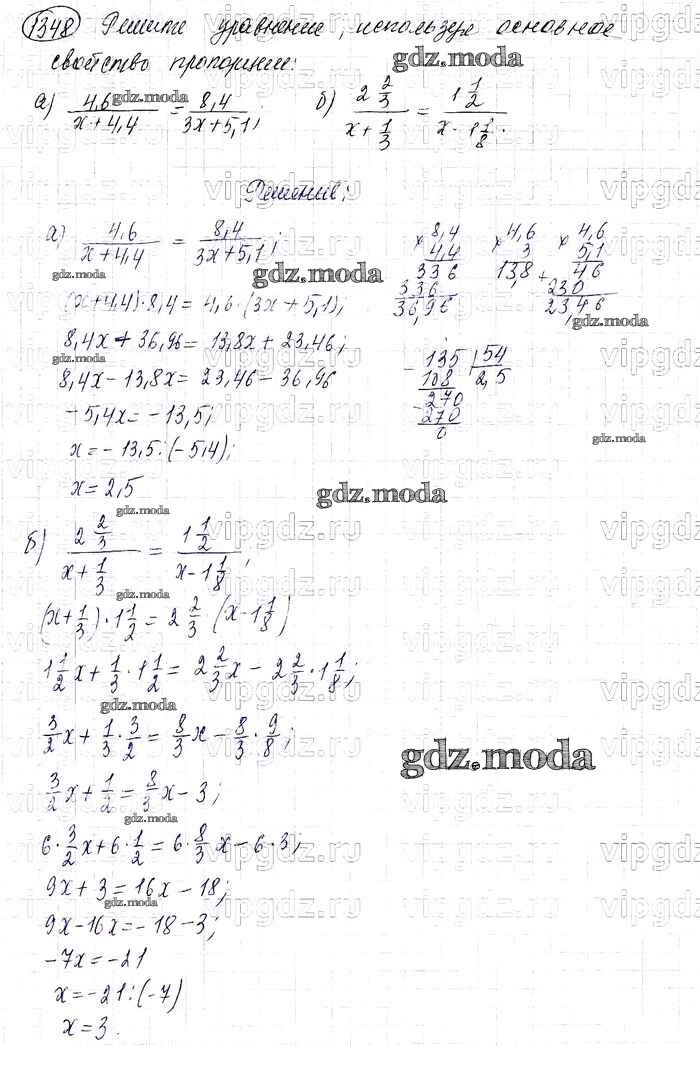 1348 Решите уравнение, используя основное
свойство пропорции:
а) 4,6/(x+4,4) = 8,4/(3x+5,1); б) 2 2/3/(x+1/3) = 1 1/2/(x-1 1/8).
Решение:
а) 4,6/(x+4,4) = 8,4/(3x+5,1);
(x+4,4)·8,4=4,6·(3x+5,1);
8,4x+36,96=13,8x+23,46;
8,4x-13,8x=23,46-36,96
-5,4x=-13,5;
x=-13,5:(-5,4);
x=2,5
×8,4
4,4
336
336
36,96
×4,6
3
13,8
×4,6
5,1
+46
230
23,46
-135 | 54
108 | 2,5
-270
270
0
б) 2 2/3/(x+1/3) = 1 1/2/(x-1 1/8);
(x+1/3)·1 1/2=2 2/3 (x-1 1/8)
1 1/2x+1/3·1 1/2=2 2/3x-2 2/3·1 1/8;
3/2x+1/3·3/2=8/3x-8/3·9/8;
3/2x+1/2=8/3x-3;
6·3/2x+6·1/2=6·8/3x-6·3;
9x+3=16x-18;
9x-16x=-18-3;
-7x=-21
x=-21:(-7)
x=3.
gdz.moda
vipgdz.ru